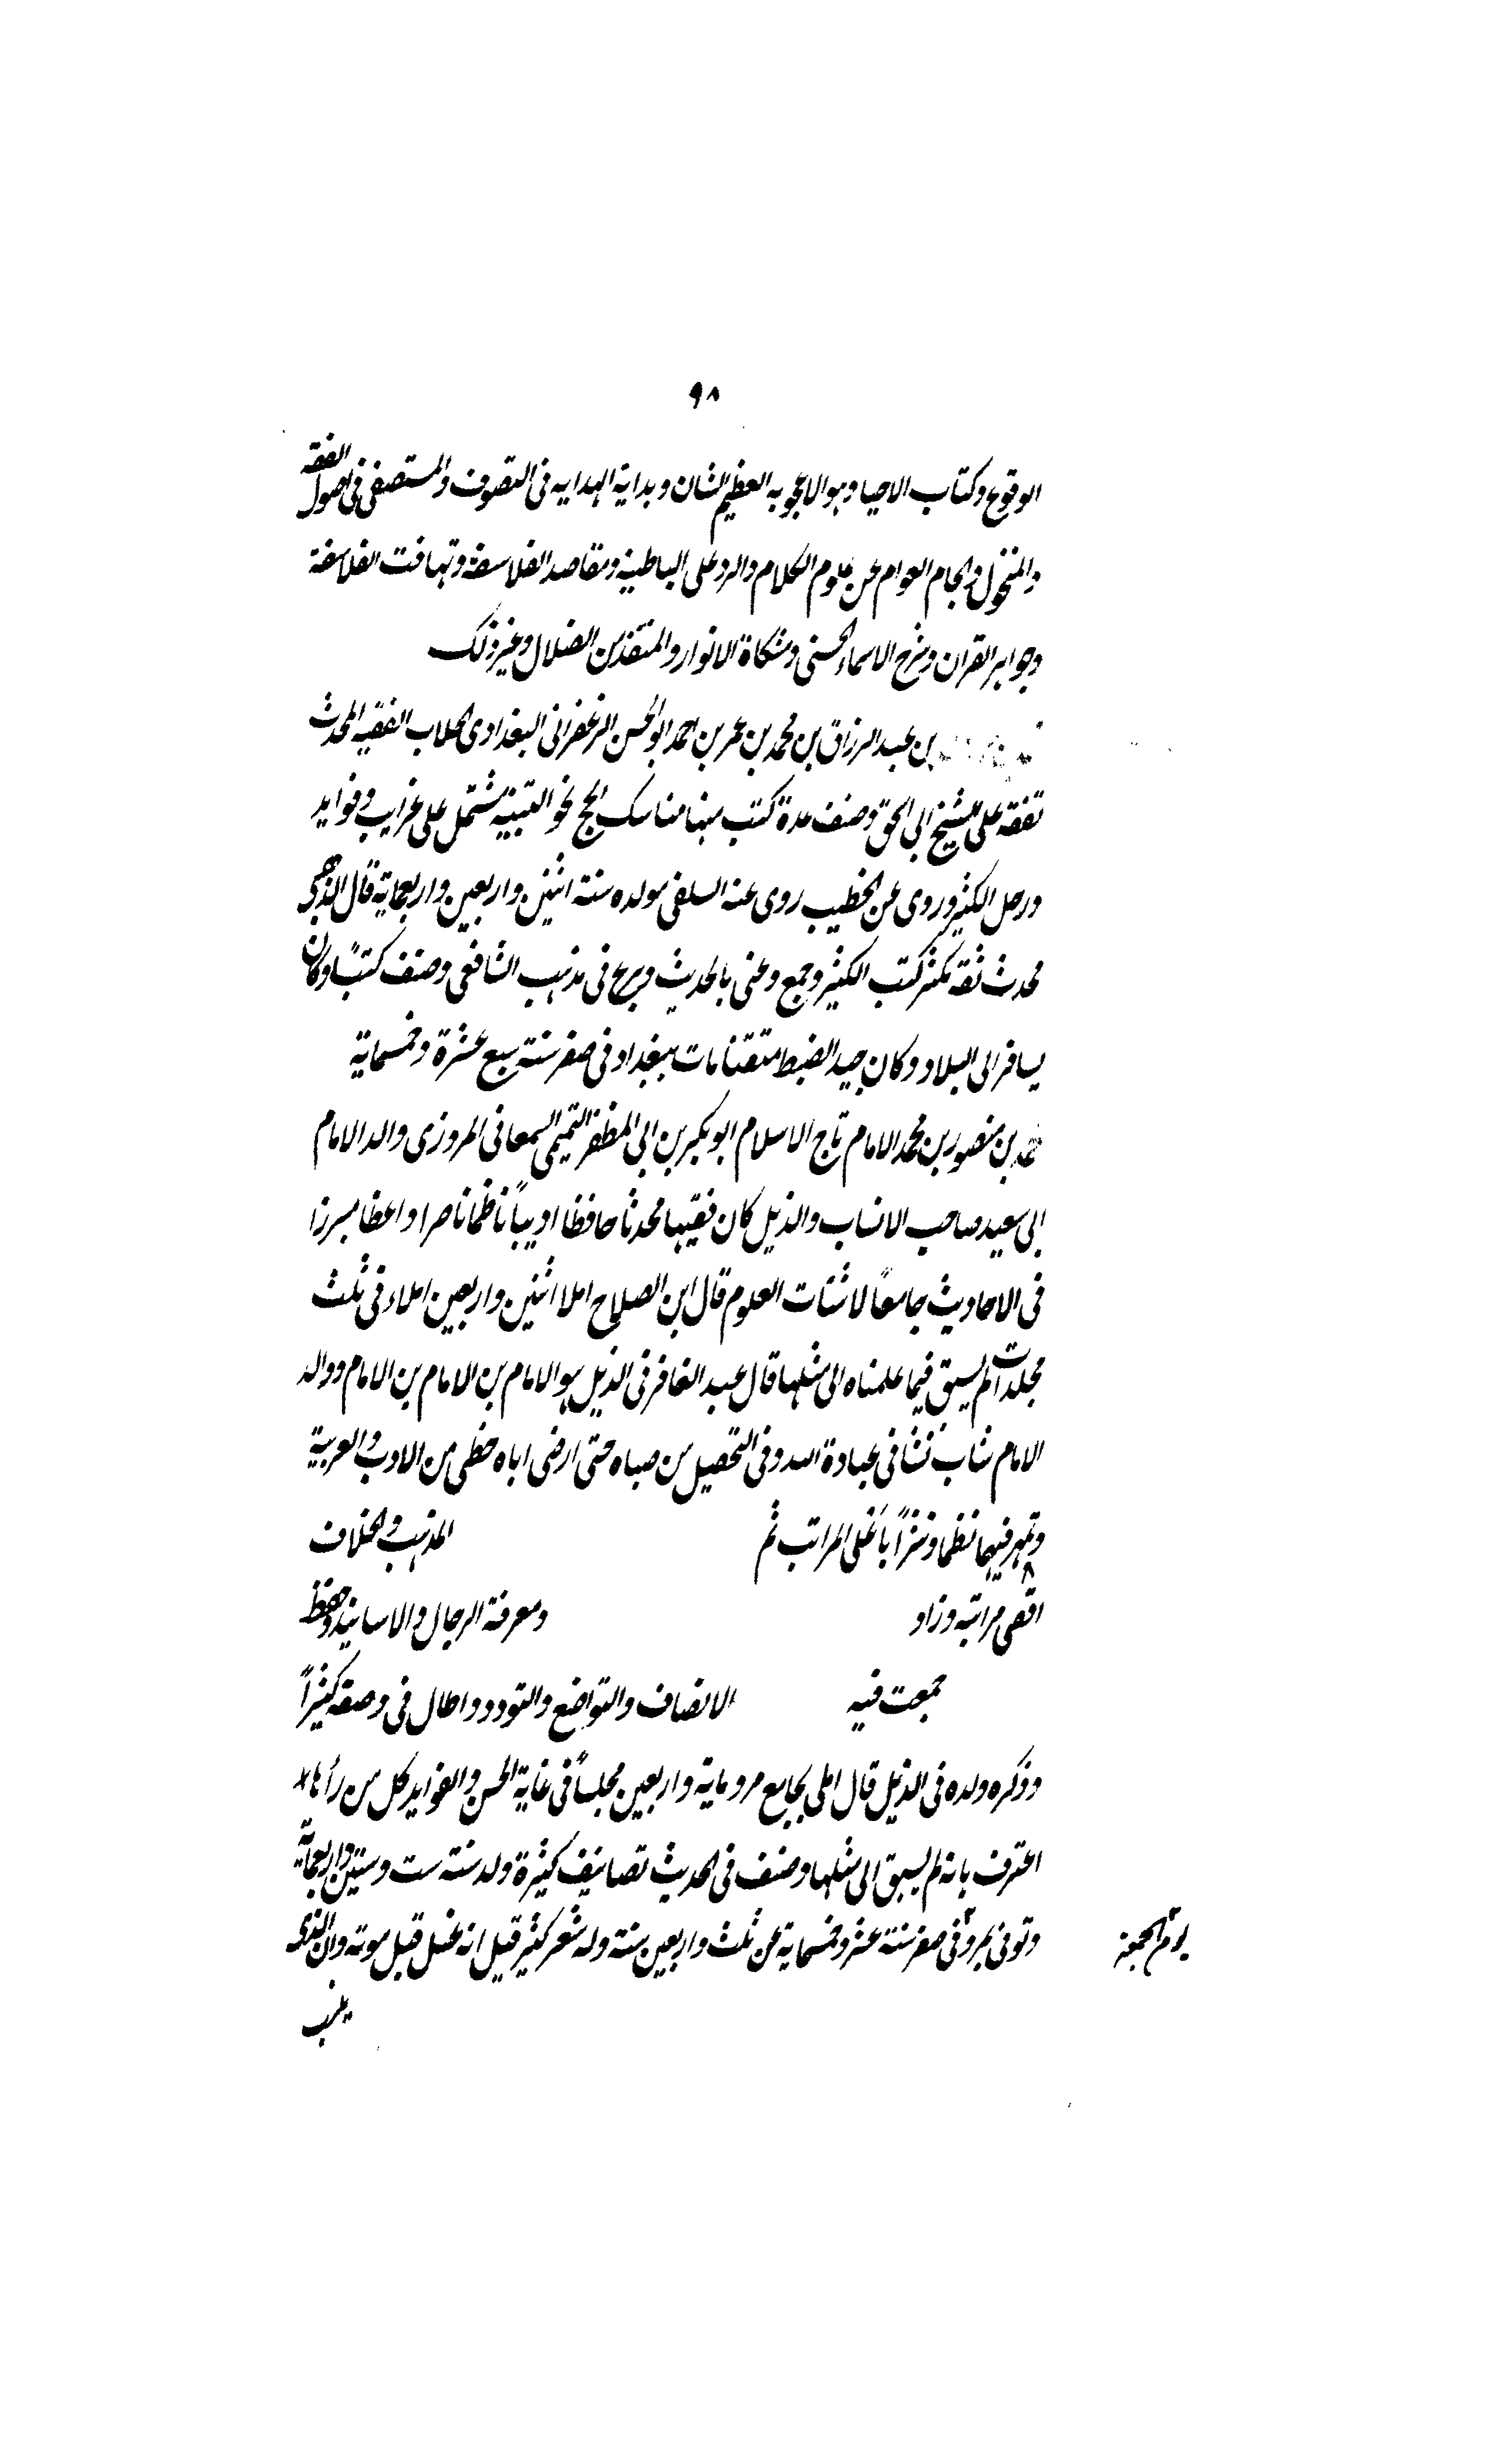 ٩٨
الوقوع وكتاب الاحيا وهو الاعجوبه العظيم الشان وبداية الهدايه فى التصوف والمستصفى فى اصول الفقه
والمنخول والجام العوام عن علوم الكلام والرد على الباطنية ومقاصد الفلاسفة وتهافت الفلاسفة
وجواهر القران وشرح الاسماء الحسنى ومشكاة الانوار والمنقذ من الضلال وغير ذلك
بن عبد الرزاق بن محمد بن عمر بن احمد ابو الحسن الزعفرانى البغدادى الجلاب الفقيه المحدث
تفقه على الشيخ ابى اسحق وصنف عدة كتب منها مناسك الحج نحو التنبيه مشتمل على غرايب وفوايد
ورحل الكثير وروى عن الخطيب روى عنه السلفى مولده سنة اثنين واربعين واربعماية قال الذهبى
محدث ثقة مكثر كتب الكثير وجمع وعنى بالحديث وبرع فى مذهب الشافعى وصنف كتبًا وكان
يسافر الى البلاد وكان جيد الضبط متقنا مات ببغداد فى صفر سنة سبع عشرة وخمسماية
محمد بن منصور بن محمد الامام تاج الاسلام ابو بكر بن ابى المظفر التميمى السمعانى المروزى والد الامام
ابى سعيد صاحب الانساب والذيل كان فقيها محدثا حافظا اديبًا ناظما ناصرا واعظا مبرزا
فى الاحاديث جامعًا لاشتات العلوم قال ابن الصلاح املا اثنين واربعين املاء فى ثلث
مجلدات لم يسبق فيما علمناه الى مثلها قال عبد الغافر فى الذيل هو الامام بن الامام بن الامام ووالد
الامام شاب نشا فى عبادة الله وفى التحصيل من صباه حتى ارضى اباه حظى من الادب والعربية
وتمهر فيها نظما ونثرًا باعلى المراتب ثم المذهب والخلاف
اقصى مراتبه وزاد ومعرفة الرجال والاسانيد وحفظ
جمعت فيه الانصاف والتواضع والتودد واطال فى وصفه كثيرًا
وذكره ولده فى الذيل قال املى بجامع مرو ماية واربعين مجلسًا فى غاية الحسن والفوايد كل من رأها
اعترف بانه لم يسبق الى مثلها وصنف فى الحديث تصانيف كثيرة ولد سنة ست وستين واربعماية
وتوفى بمرو فى صفر سنة عشر وخمسماية عن ثلث واربعين سنة وله شعر كثير قيل انه غسل قبل موته وان الذى
يوم الجمعة